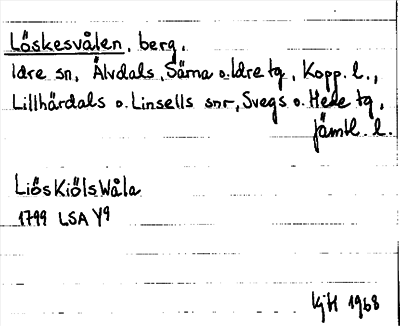 Löskesvålen, berg,
Idre sn, Älvdals, Särna o. Idre tg, Kopp. l.,
Lillhärdals o. Linsells snr, Svegs o. Hede tg,
Jämtl. l.
LiösKiölsWåla
1799 LSA Y9
KjH 1968